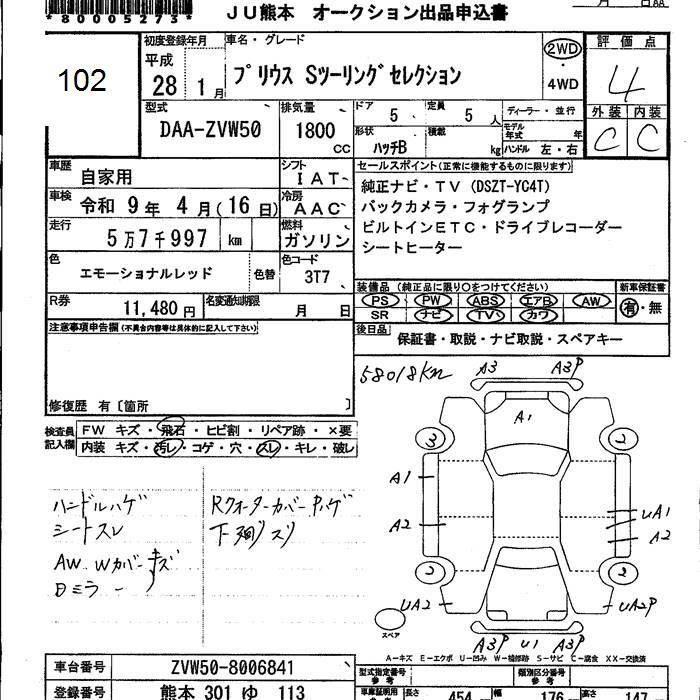 *80005273*
JU熊本 オークション出品申込書
月 日AA
102
初度登録年月
平成
28 1 月
車名・グレード
プリウス Sツーリングセレクション
2WD
・
4WD
評価点
4
外装 内装
C C
型式
DAA-ZVW50
排気量
1800
CC
ドア
5
定員
5 人
形状
ハッチB
積載
kg
ディーラー・並行
モデル年式 年
ハンドル 左・右
車歴
自家用
シフト
IAT
車検
令和 9年 4月(16日)
冷房
AAC
走行
5万7千997 km
燃料
ガソリン
色
エモーショナルレッド
色替
色コード
3T7
R券
11,480円
名変通知期限
月 日
セールスポイント(正常に機能するものに限ります)
純正ナビ・TV (DSZT-YC4T)
バックカメラ・フォグランプ
ビルトインETC・ドライブレコーダー
シートヒーター
装備品 (純正品に限り○をつけてください)
PS PW ABS エアB AW
SR ナビ TV カワ
新車保証書
有・無
後日品
保証書・取説・ナビ取説・スペアキー
注意事項申告欄(不具合内容等は具体的に記入して下さい)
修復歴 有〔箇所 〕
検査員
記入欄
FW キズ・飛石・ヒビ割・リペア跡・×要
内装 キズ・汚レ・コゲ・穴・スレ・キレ・破レ
58018km
ハンドルハゲ
シートスレ
AW Wカバーキズ
日ミラー
RクォーターカバーPハゲ
下廻リスリ
A3 A3P
A1
3 2
A1
A2
UA1
A2
2 2
UA2 UA2P
A3P U1 A3P
スペア
A―キズ E―エクボ U―凹み W―補修跡 S―サビ C―腐食 XX―交換済
車台番号
ZVW50-8006841
登録番号
熊本 301 ゆ 113
型式指定番号
参考
類別区分番号
参考
長さ 454 幅 176 高さ 147